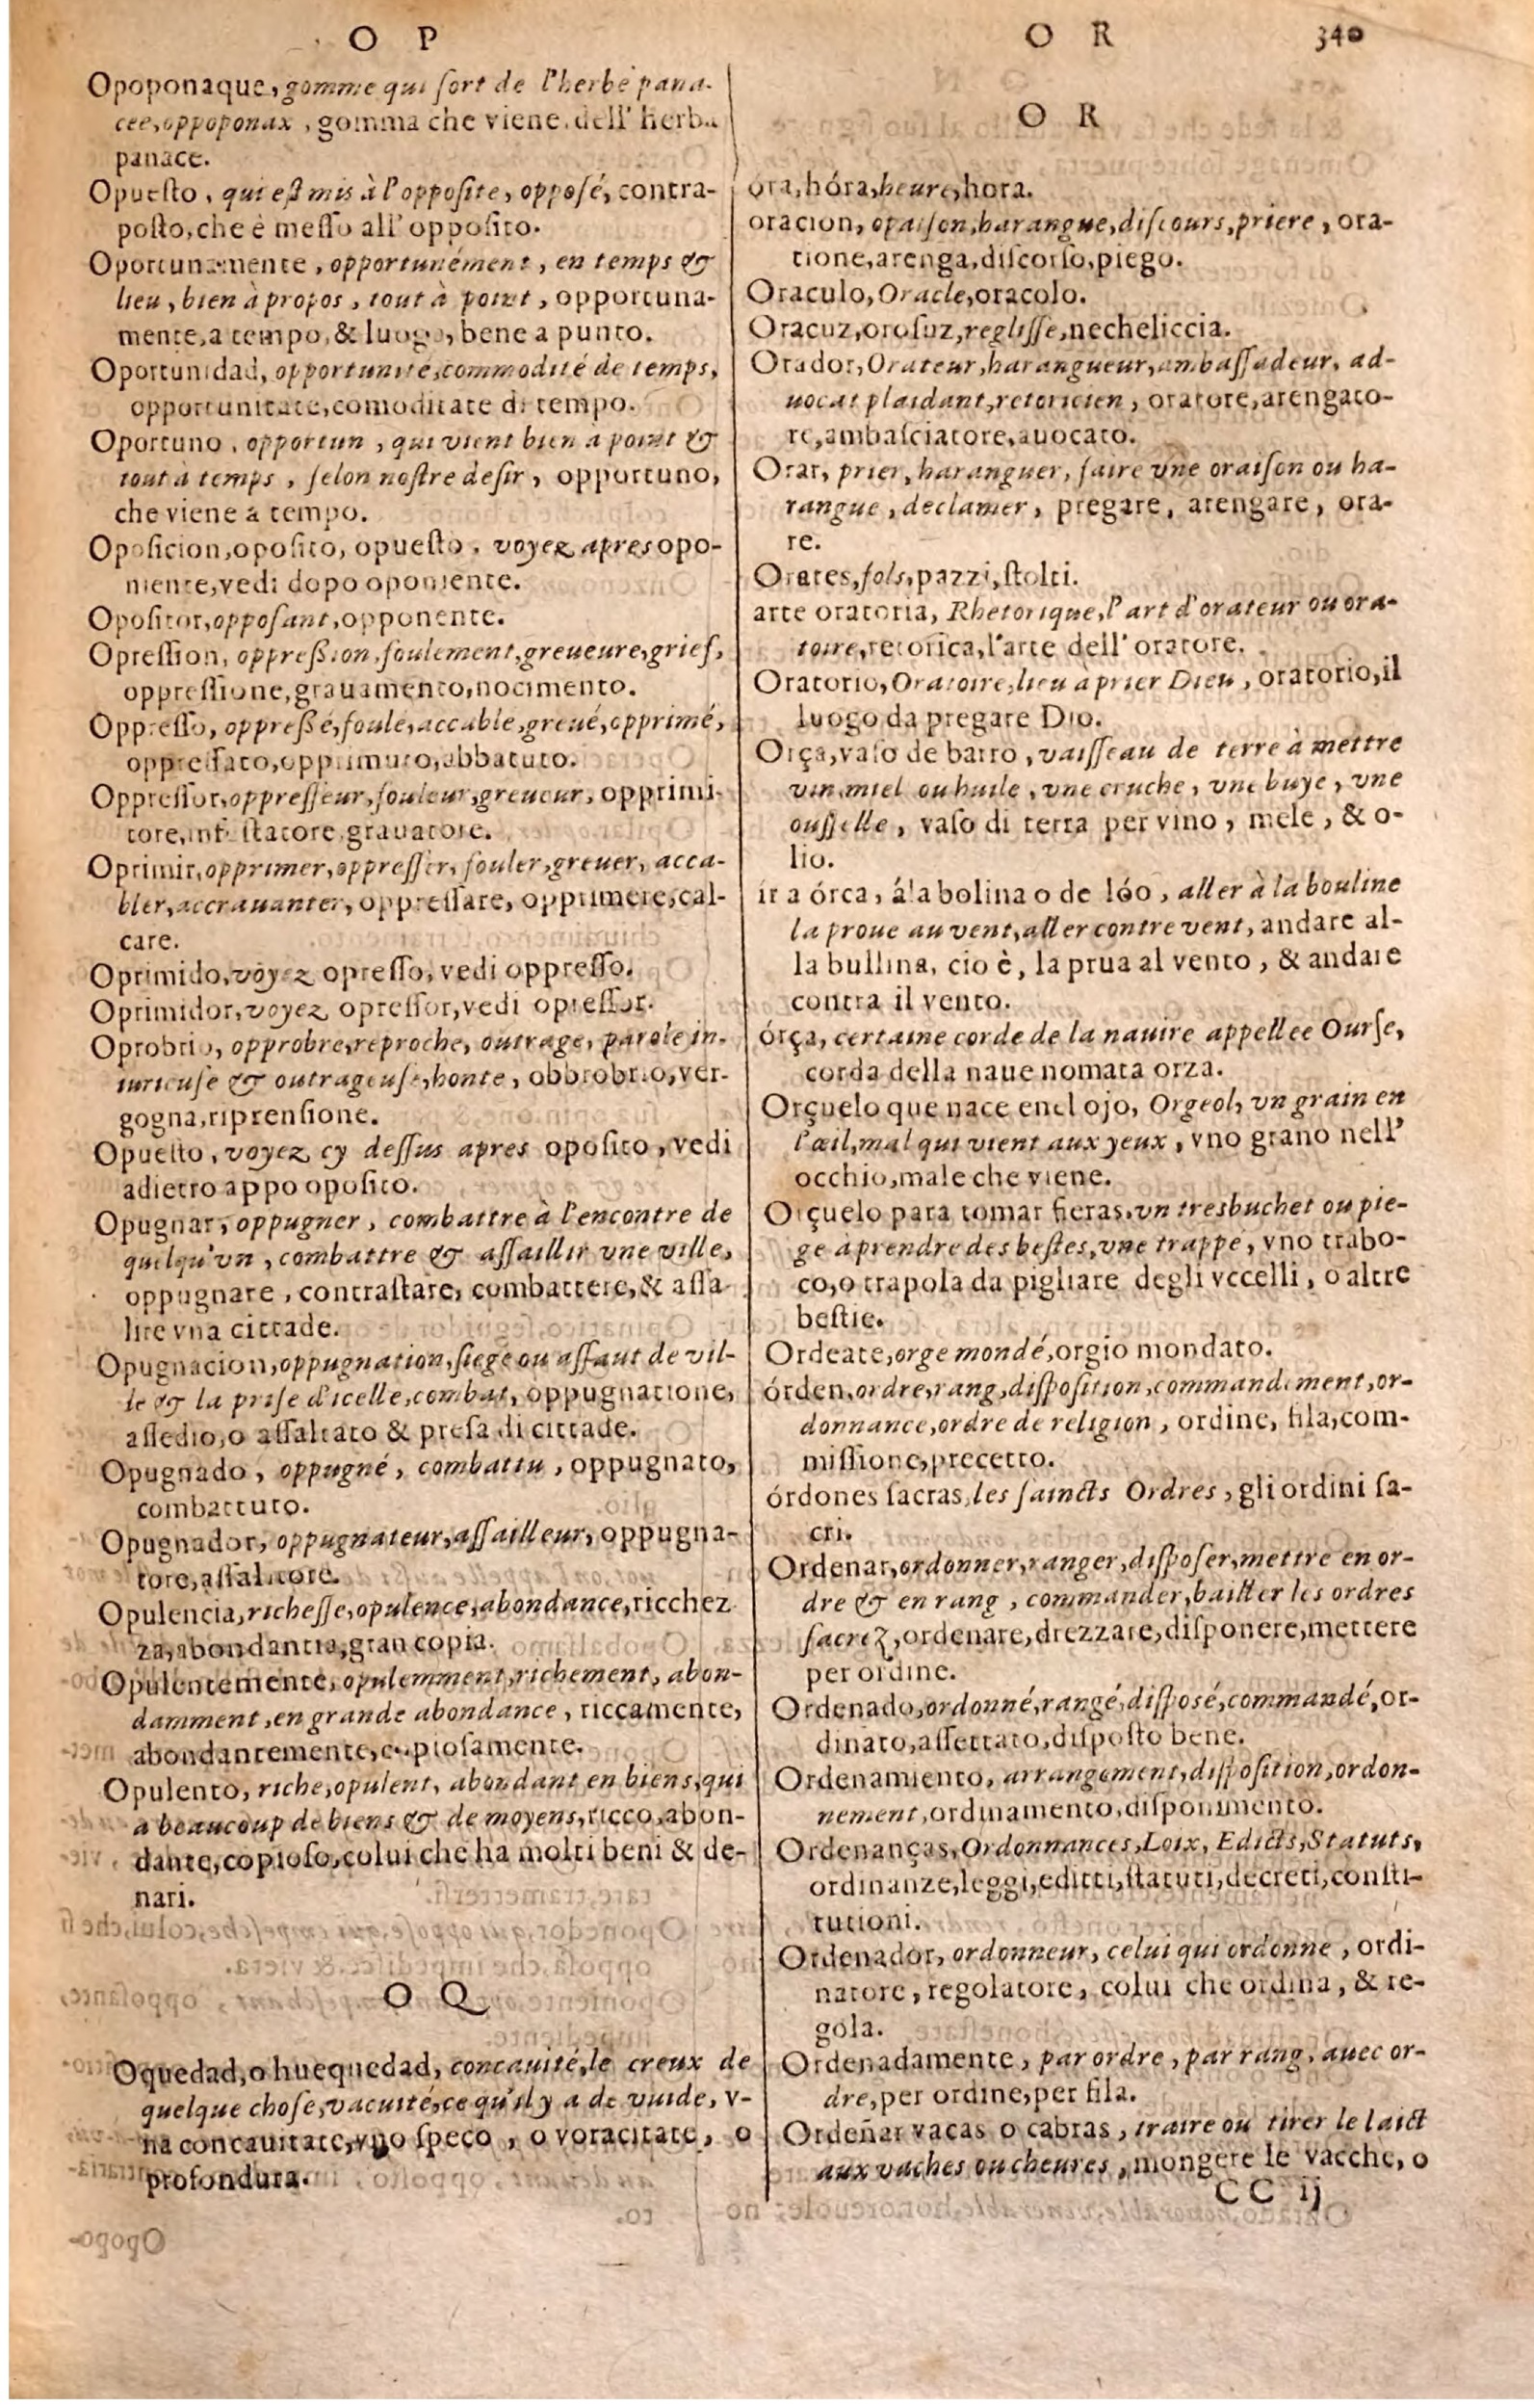 O P
Opoponaque, gomme qui ſort de l'herbe pana-
cee, oppoponax, gomma che viene dell' herba
panace.
Opueſto, qui eſt mis à l'oppoſite, oppoſé, contra-
poſto, che è meſſo all' oppoſito.
Oportunamente, opportunément, en temps &
lieu, bien à propos, tout à point, opportuna-
mente, a tempo, & luogo, bene a punto.
Oportunidad, opportunité, commodité de temps,
opportunitate, comoditate di tempo.
Oportuno, opportun, qui vient bien a point &
tout à temps, ſelon noſtre deſir, opportuno,
che viene a tempo.
Opoſicion, opoſito, opueſto, voyez apres opo-
niente, vedi dopo oponiente.
Opoſitor, oppoſant, opponente.
Opreſſion, oppreſsion, foulement, greueure, grief,
oppreſſione, grauamento, nocimento.
Oppreſſo, oppreſsé, foulé, accablé, greué, opprimé,
oppreſſato, opprimuto, abbatuto.
Oppreſſor, oppreſſeur, fouleur, greueur, opprimi-
tore, infeſtatore, grauatore.
Oprimir, opprimer, oppreſſer, fouler, greuer, acca-
bler, accrauanter, oppreſſare, opprimere, cal-
care.
Oprimido, voyez opreſſo, vedi oppreſſo.
Oprimidor, voyez opreſſor, vedi opreſſor.
Oprobrio, opprobre, reproche, outrage, parole in-
iurieuſe & outrageuſe, honte, obbrobrio, ver-
gogna, riprenſione.
Opueſto, voyez cy deſſus apres opoſito, vedi
adietro appo opoſito.
Opugnar, oppugner, combattre à l'encontre de
quelqu'vn, combattre & aſſaillir vne ville,
oppugnare, contraſtare, combattere, & aſſa
lire vna cittade.
Opugnacion, oppugnation, ſiege ou aſſaut de vil-
le & la priſe d'icelle, combat, oppugnatione,
aſſedio, o aſſaltato & preſa di cittade.
Opugnado, oppugné, combattu, oppugnato,
combattuto.
Opugnador, oppugnateur, aſſailleur, oppugna-
tore, aſſalitore.
Opulencia, richeſſe, opulence, abondance, ricchez
za, abondantia, gran copia.
Opulentemente, opulemment, richement, abon-
damment, en grande abondance, riccamente,
abondantemente, copioſamente.
Opulento, riche, opulent, abondant en biens, qui
a beaucoup de biens & de moyens, ricco, abon-
dante, copioſo, colui che ha molti beni & de-
nari.
O Q
Oquedad, o huequedad, concauité, le creux de
quelque choſe, vacuité, ce qu'il y a de vuide, v-
na concauitate, vno ſpeco, o voracitate, o
profondura.
O R 340
O R
óra, hóra, heure, hora.
oracion, oraiſon, harangue, diſcours, priere, ora-
tione, arenga, diſcorſo, piego.
Oraculo, Oracle, oracolo.
Oracuz, oroſuz, regliſſe, necheliccia.
Orador, Orateur, harangueur, ambaſſadeur, ad-
uocat plaidant, retoricien, oratore, arengato-
re, ambaſciatore, auocato.
Orar, prier, haranguer, faire vne oraiſon ou ha-
rangue, declamer, pregare, arengare, ora-
re.
Orates, fols, pazzi, ſtolti.
arte oratoria, Rhetorique, l'art d'orateur ou ora-
toire, retorica, l'arte dell' oratore.
Oratorio, Oratoire, lieu à prier Dieu, oratorio, il
luogo da pregare Dio.
Orça, vaſo de barro, vaiſſeau de terre à mettre
vin, miel ou huile, vne cruche, vne buye, vne
ouſſelle, vaſo di terra per vino, mele, & o-
lio.
ir a órca, á la bolina o de lóo, aller à la bouline
la proue au vent, aller contre vent, andare al-
la bullina, cio è, la prua al vento, & andare
contra il vento.
órça, certaine corde de la nauire appellee Ourſe,
corda della naue nomata orza.
Orçuelo que nace en el ojo, Orgeol, vn grain en
l'œil, mal qui vient aux yeux, vno grano nell'
occhio, male che viene.
Orçuelo para tomar fieras, vn tresbuchet ou pie-
ge à prendre des beſtes, vne trappe, vno trabo-
co, o trapola da pigliare degli vccelli, o altre
beſtie.
Ordeate, orge mondé, orgio mondato.
órden, ordre, rang, diſpoſition, commandement, or-
donnance, ordre de religion, ordine, fila, com-
miſſione, precetto.
órdones ſacras, les ſaincts Ordres, gli ordini ſa-
cri.
Ordenar, ordonner, ranger, diſpoſer, mettre en or-
dre & en rang, commander, bailler les ordres
ſacrez, ordenare, drezzare, diſponere, mettere
per ordine.
Ordenado, ordonné, rangé, diſposé, commandé, or-
dinato, aſſettato, diſpoſto bene.
Ordenamiento, arrangement, diſpoſition, ordon-
nement, ordinamento, diſponimento.
Ordenanças, Ordonnances, Loix, Edicts, Statuts,
ordinanze, leggi, editti, ſtatuti, decreti, conſti-
tutioni.
Ordenador, ordonneur, celui qui ordonne, ordi-
natore, regolatore, colui che ordina, & re-
gola.
Ordenadamente, par ordre, par rang, auec or-
dre, per ordine, per fila.
Ordeñar vacas o cabras, traire ou tirer le laict
aux vaches ou cheures, mongere le vacche, o
CC ij